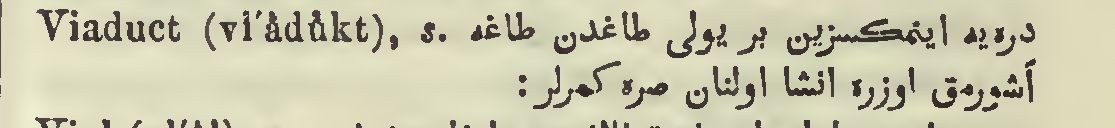 Viaduct (vī´ådůkt), s. دره‌یه اینمکسزین بر یولی طاغدن طاغه
آشورمق اوزره انشا اولنان صره کمرلر :